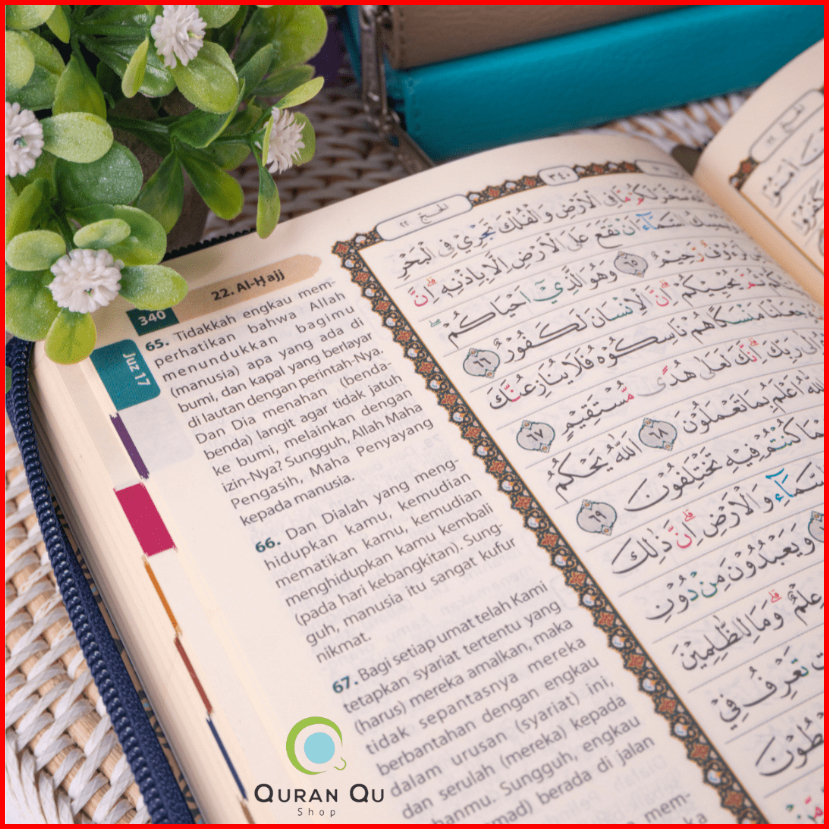 22. Al-Ḥajj
340
Juz 17
65. Tidakkah engkau mem-
perhatikan bahwa Allah
menundukkan bagimu
(manusia) apa yang ada di
bumi, dan kapal yang berlayar
di lautan dengan perintah-Nya.
Dan Dia menahan (benda-
benda) langit agar tidak jatuh
ke bumi, melainkan dengan
izin-Nya? Sungguh, Allah Maha
Pengasih, Maha Penyayang
kepada manusia.
66. Dan Dialah yang meng-
hidupkan kamu, kemudian
mematikan kamu, kemudian
menghidupkan kamu kembali
(pada hari kebangkitan). Sung-
guh, manusia itu sangat kufur
nikmat.
67. Bagi setiap umat telah Kami
tetapkan syariat tertentu yang
(harus) mereka amalkan, maka
tidak sepantasnya mereka
berbantahan dengan engkau
dalam urusan (syariat) ini,
dan serulah (mereka) kepada
berada di jalan
الحج ٢٢
٣٤٠
سَخَّرَ لَكُمْ مَّا فِى الْاَرْضِ وَالْفُلْكَ تَجْرِيْ فِى الْبَحْرِ
السَّمَاۤءَ اَنْ تَقَعَ عَلَى الْاَرْضِ اِلَّا بِاِذْنِهٖۗ اِنَّ
رَّحِيْمٌ ٦٥ وَهُوَ الَّذِيْٓ اَحْيَاكُمْ
يُحْيِيْكُمْۗ اِنَّ الْاِنْسَانَ لَكَفُوْرٌ ٦٦
جَعَلْنَا مَنْسَكًا هُمْ نَاسِكُوْهُ فَلَا يُنَازِعُنَّكَ
رَبِّكَۗ اِنَّكَ لَعَلٰى هُدًى مُّسْتَقِيْمٍ ٦٧
اَعْلَمُ بِمَا تَعْمَلُوْنَ ٦٨ اَللّٰهُ يَحْكُمُ
كُنْتُمْ فِيْهِ تَخْتَلِفُوْنَ ٦٩
السَّمَاۤءِ وَالْاَرْضِۗ اِنَّ ذٰلِكَ
وَيَعْبُدُوْنَ مِنْ دُوْنِ
عِلْمٌ وَمَا لِلظّٰلِمِيْنَ
تَعْرِفُ فِيْ
QURAN QU
Shop